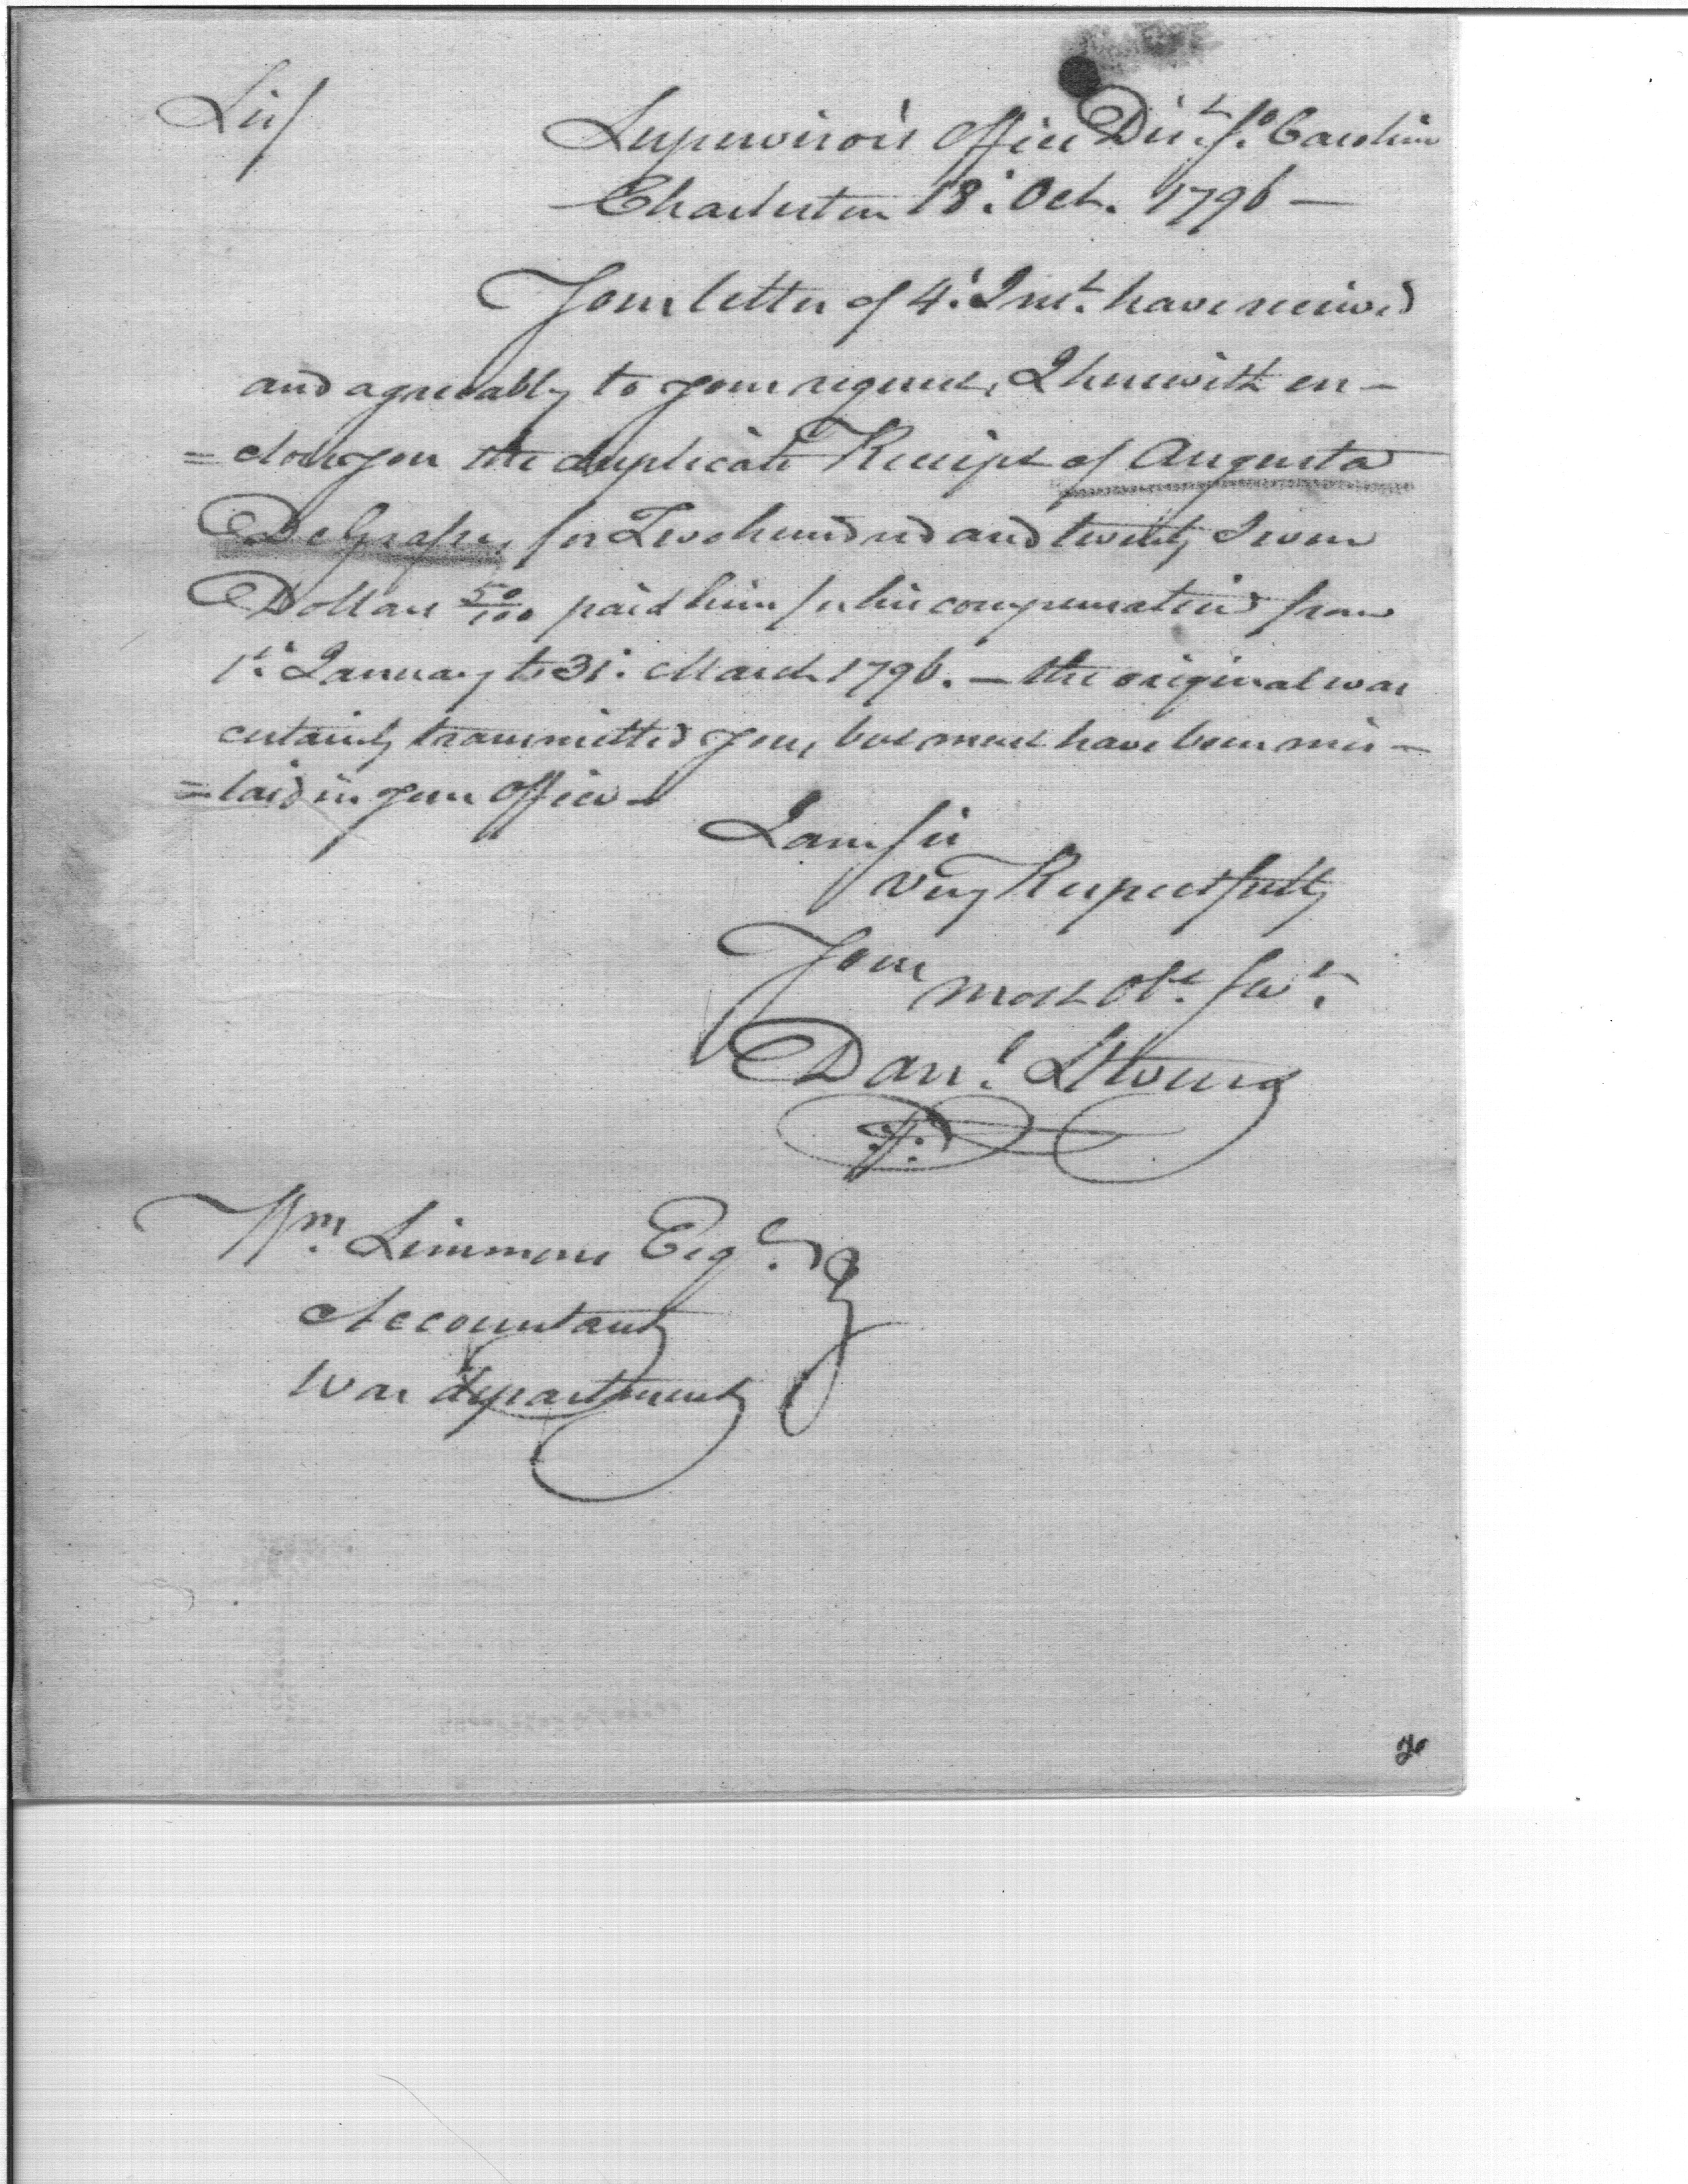 Sir/
Supervisor's Office Dist. So. Carolina
Charleston 18. Oct. 1796 —
Your letter of 4. Inst. have received
and agreeably to your request, I herewith en-
=close you the duplicate Receipt of Augusta
DeGrasse, for Two hundred and twenty Seven
Dollars 50/100 paid him for his compensation from
1st. January to 31. March 1796. — the original was
certainly transmitted you, but must have been mis-
=laid in your Office —
I am Sir
very Respectfully
Your
most Obt. Servt.
Danl. Stevens
Wm. Simmons Esqr.
Accountant
War department
26